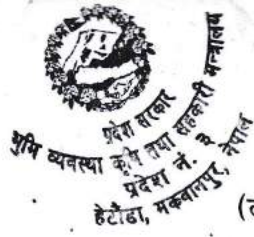 प्रदेश सरकार
भूमि व्यवस्था कृषि तथा सहकारी मन्त्रालय
प्रदेश नं. ३
हेटौंडा, मकवानपुर, नेपाल
(त